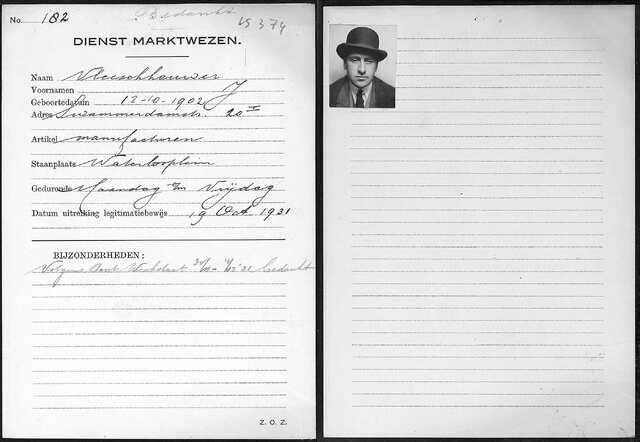 No. 182 Bedankt VS 374
DIENST MARKTWEZEN.
Naam Vleeschhouwer
Voornamen J
Geboortedatum 12-10-1902
Adres Swammerdamstr. 20 I
Artikel manufacturen
Staanplaats Waterlooplein
Gedurende Maandag t/m Vrijdag
Datum uitreiking legitimatiebewijs 19 Oct. 1931
BIJZONDERHEDEN:
Volgens bedankt
Z. O. Z.